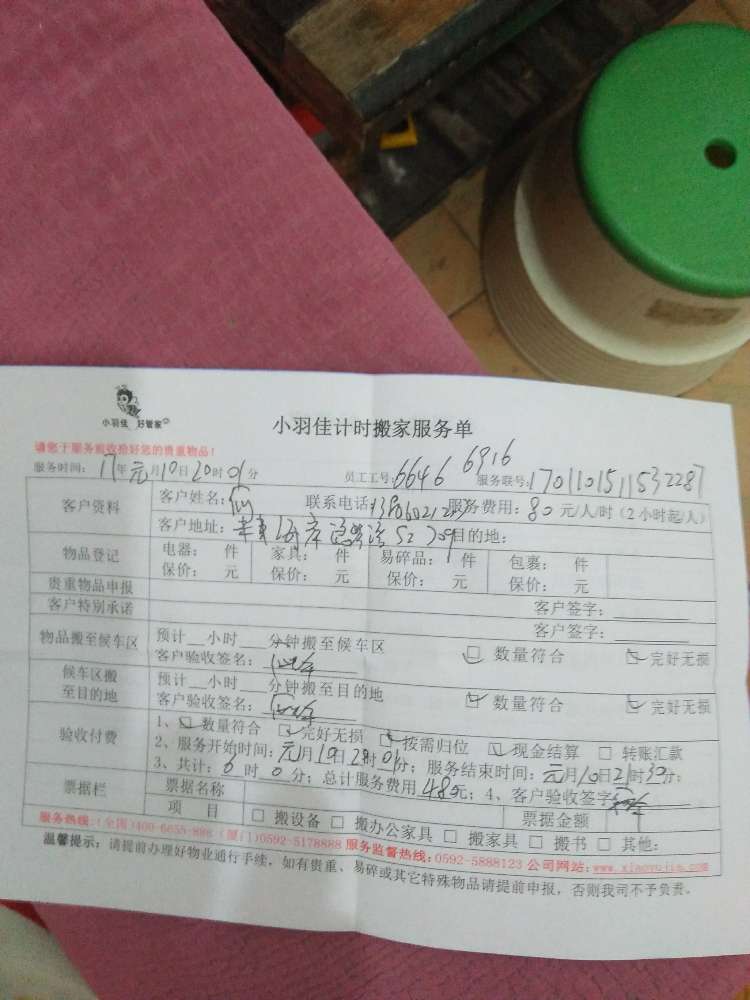 小羽佳 好管家
小羽佳计时搬家服务单
请您于服务前收拾好您的贵重物品！
服务时间：17年元月10日20时01分 员工工号：6646 6916 服务联号：1701101511532287
客户资料 客户姓名： 联系电话 服务费用：80元/人/时（2小时起/人）
客户地址： 目的地：
物品登记 电器： 件 家具： 件 易碎品： 件 包裹： 件
保价： 元 保价： 元 保价： 元 保价： 元
贵重物品申报 客户签字：
客户特别承诺 客户签字：
物品搬至候车区 预计__小时___分钟搬至候车区
客户验收签名： 数量符合 完好无损
候车区搬至目的地 预计__小时___分钟搬至目的地
客户验收签名： 数量符合 完好无损
验收付费 1、数量符合 完好无损 按需归位 现金结算 □ 转账汇款
2、服务开始时间：元月10日20时01分；服务结束时间：元月10日21时30分；
3、共计：6时0分；总计服务费用480元；4、客户验收签字
票据栏 票据名称 票据金额
项 目 □ 搬设备 □ 搬办公家具 □ 搬家具 □ 搬书 □ 其他：
服务热线：(全国)400-6655-886 (厦门)0592-5178888 服务监督热线：0592-5888123 公司网站：www.xiaoyujia.com
温馨提示：请提前办理好物业通行手续，如有贵重、易碎或其它特殊物品请提前申报，否则我司不予负责。